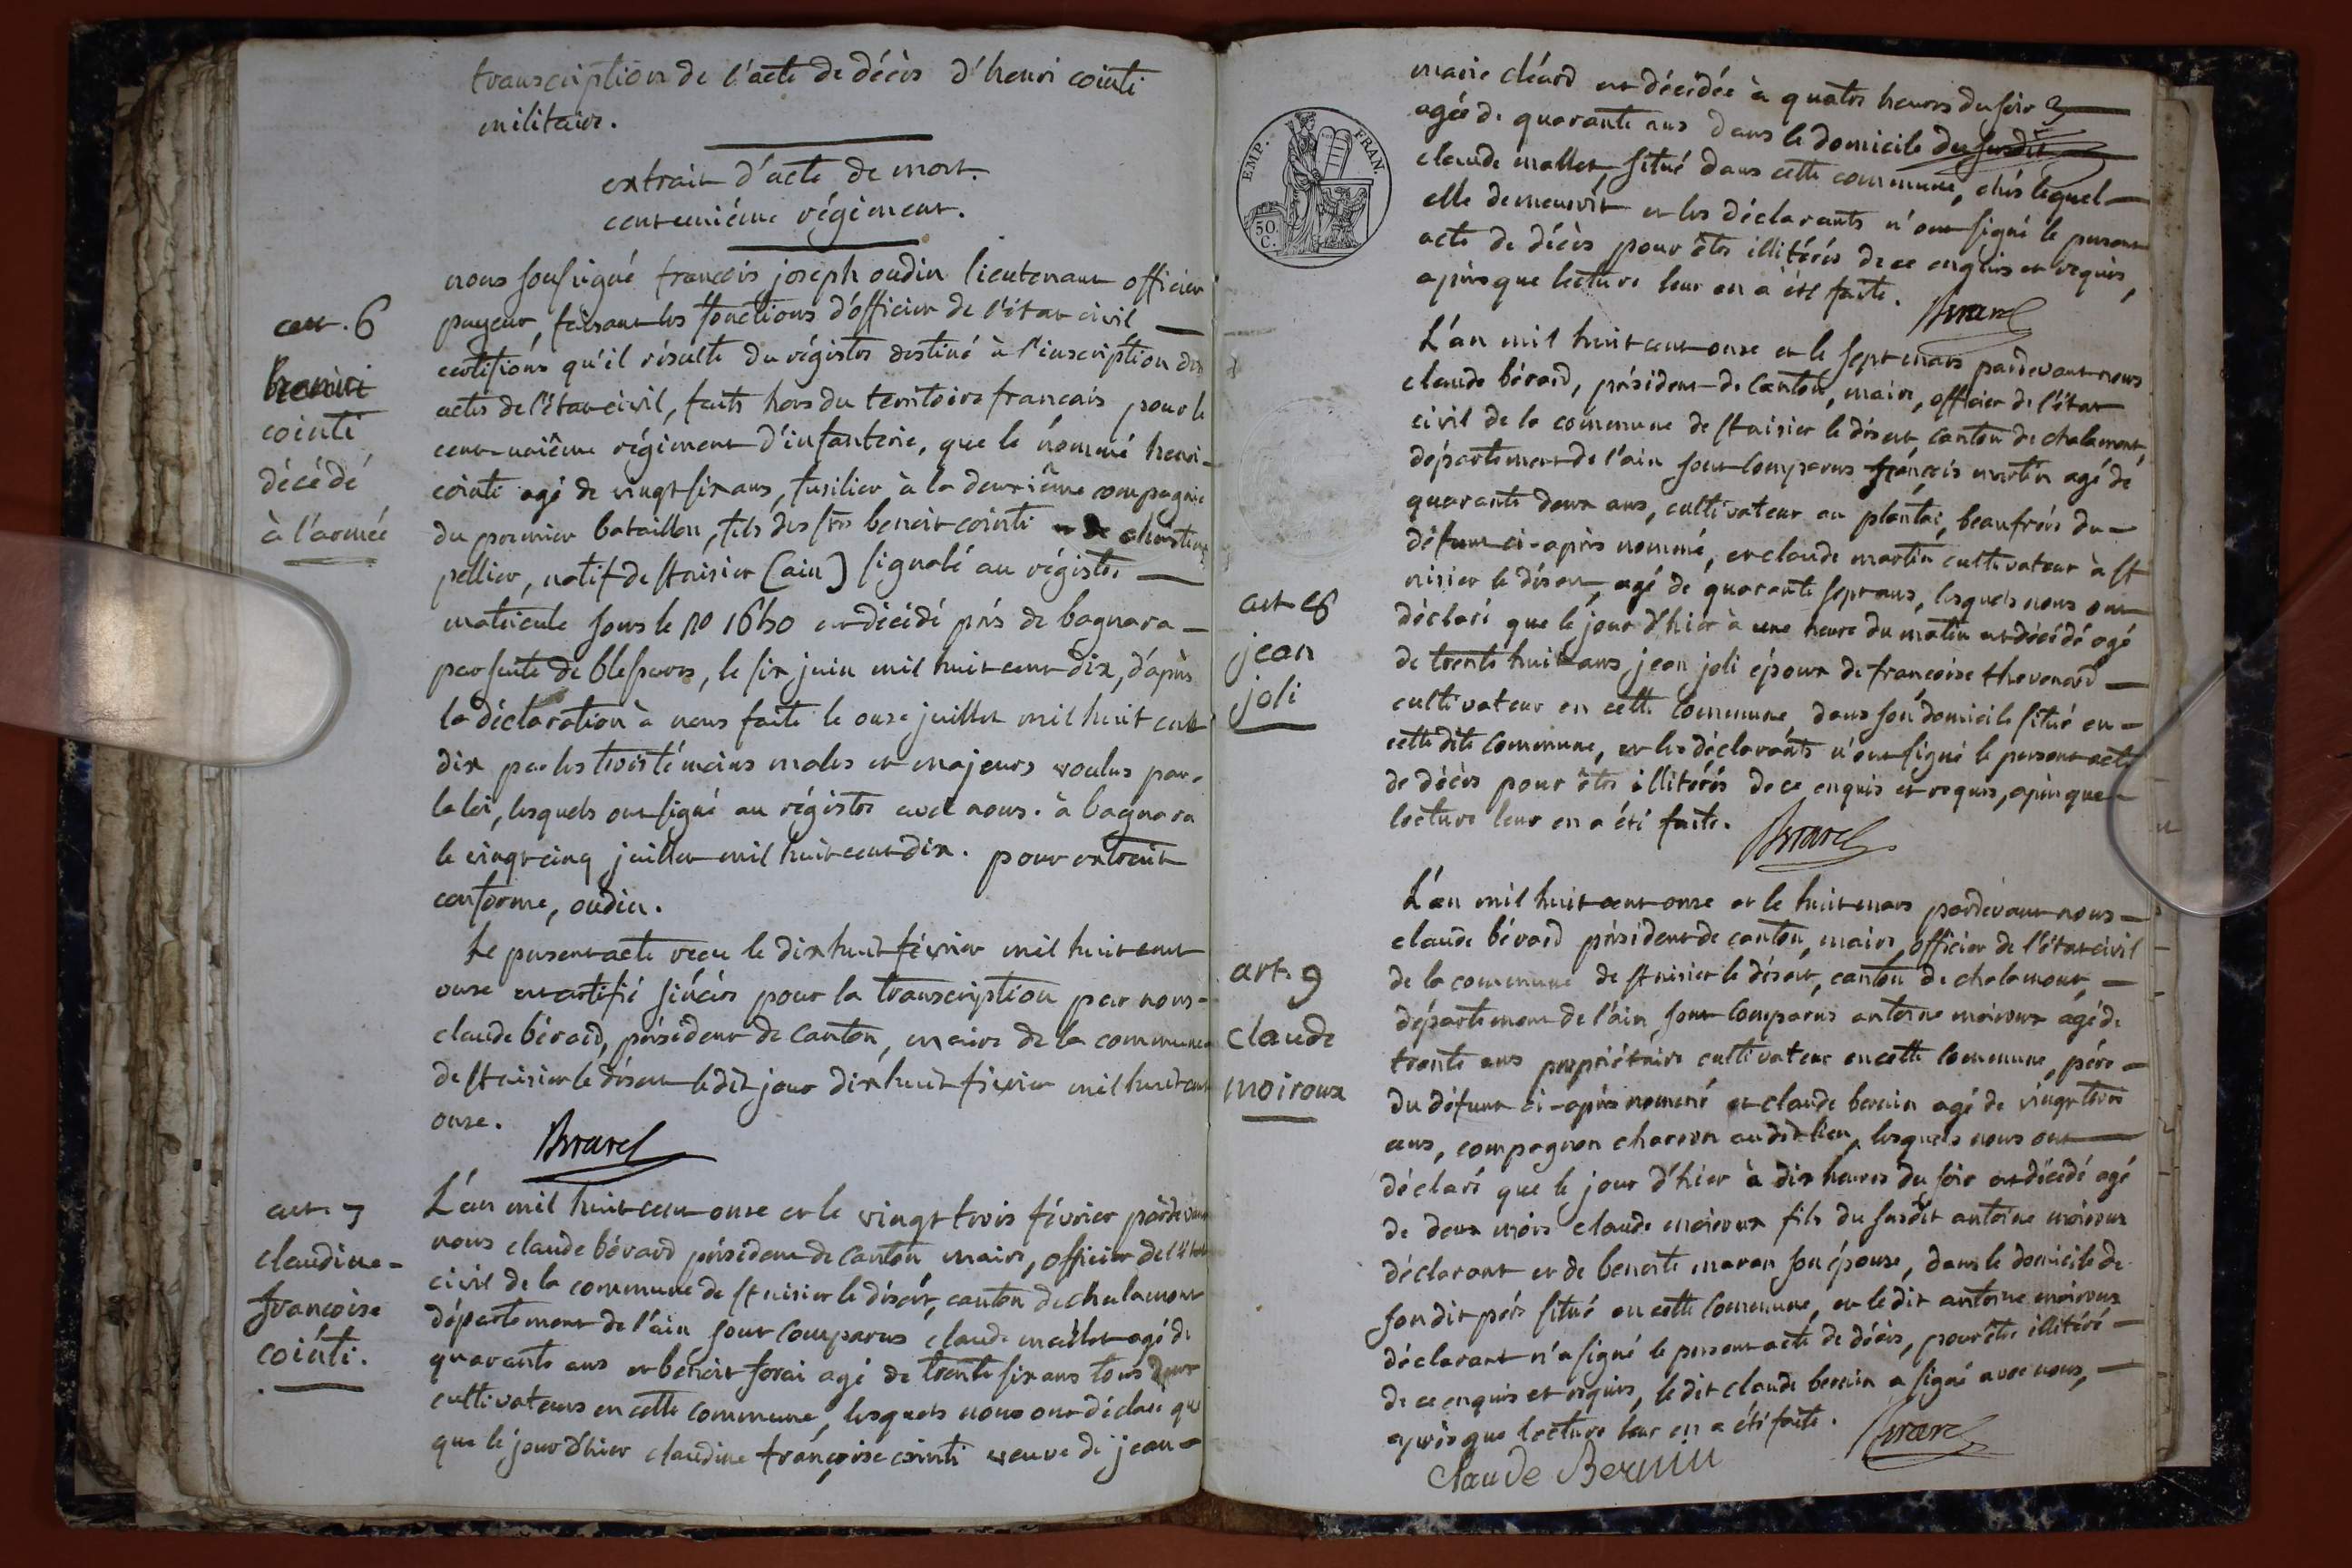 transcription de l'acte de décès d'henri cointi
militaire.
extrait d'acte de mort.
cent unième régiment.
art. 6
henri
cointi
décédé
à l'armée
nous soussigné françois joseph oudin lieutenant officier
payeur, faisant les fonctions d'officier de l'état civil
certifions qu'il résulte du régistre destiné à l'inscription des
actes de l'état civil, faits hors du territoire francais pour le
cent unième régiment d'infanterie, que le nommé henri
cointi agé de vingt six ans, fusilier à la deuxième compagnie
du premier bataillon, fils des frs benoit cointi et de christine
pellier, natif de st nisier (ain) signalé au régistre
matricule sous le no 1650 est décédé près de bagnara
par suite de blessures, le six juin mil huit cent dix, d'après
la déclaration à nous faite le onze juillet mil huit cent
dix par les trois témoins males et majeurs voulus par
la loi, lesquels ont signé au régistre avec nous. à bagnara
le vingt cinq juillet mil huit cent dix. pour extrait
conforme, oudin.
Le present acte recu le dix huit février mil huit cent
onze est certifié sincère pour la transcription par nous
claude bérard, président de canton, maire de la commune
de st nisier le désert ledit jour dix huit février mil huit cent
onze.
Brard
art. 7
claudine
françoise
cointi.
L'an mil huit cent onze et le vingt trois février pardevant
nous claude bérard président de canton maire, officier de l'état
civil de la commune de st nisier le désert, canton de chalamont
département de l'ain sont comparus claude mallet agé de
quarante ans et benoit forai agé de trente six ans tous deux
cultivateurs en cette commune, lesquels nous ont déclaré que
que le jour d'hier claudine françoise cointi veuve de jean
EMP. FRAN.
50.
C.
marie cléard est décédée à quatre heures du soir
agée de quarante ans dans le domicile du susdit
claude mallet, situé dans cette commune, chés lequel
elle demeuroit et les déclarants n'ont signé le present
acte de décès pour être illitérés de ce enquis et requis,
après que lecture leur en a été faite.
Brard
art. 8
jean
joli
L'an mil huit cent onze et le sept mars pardevant nous
claude bérard, président de canton, maire, officier de l'état
civil de la commune de st nisier le désert canton de chalamont,
département de l'ain sont comparus françois martin agé de
quarante deux ans, cultivateur au plantai, beaufrère du
défunt ci-après nommé, et claude martin cultivateur à st
nisier le désert, agé de quarante sept ans, lesquels nous ont
déclaré que le jour d'hier à une heure du matin est décédé agé
de trente huit ans jean joli époux de françoise thevenard
cultivateur en cette commune, dans son domicile situé en
cette dite commune, et les déclarants n'ont signé le present acte
de décès pour être illitérés de ce enquis et requis, après que
lecture leur en a été faite.
Brard
art. 9
claude
moiroux
L'an mil huit cent onze et le huit mars pardevant nous
claude bérard président de canton, maire, officier de l'état civil
de la commune de st nisier le désert, canton de chalamont,
département de l'ain sont comparus antoine moiroux agé de
trente ans propriétaire cultivateur en cette commune, père
du défunt ci-après nommé et claude bernin agé de vingt trois
ans, compagnon charron audit lieu, lesquels nous ont
déclaré que le jour d'hier à dix heures du soir est décédé agé
de deux mois claude moiroux fils du susdit antoine moiroux
déclarant et de benoite maran son épouse, dans le domicile de
son dit père situé en cette commune, et le dit antoine moiroux
déclarant n'a signé le present acte de décès, pour être illitéré
de ce enquis et requis, le dit claude bernin a signé avec nous,
après que lecture leur en a été faite.
Brard
Claude Bernin